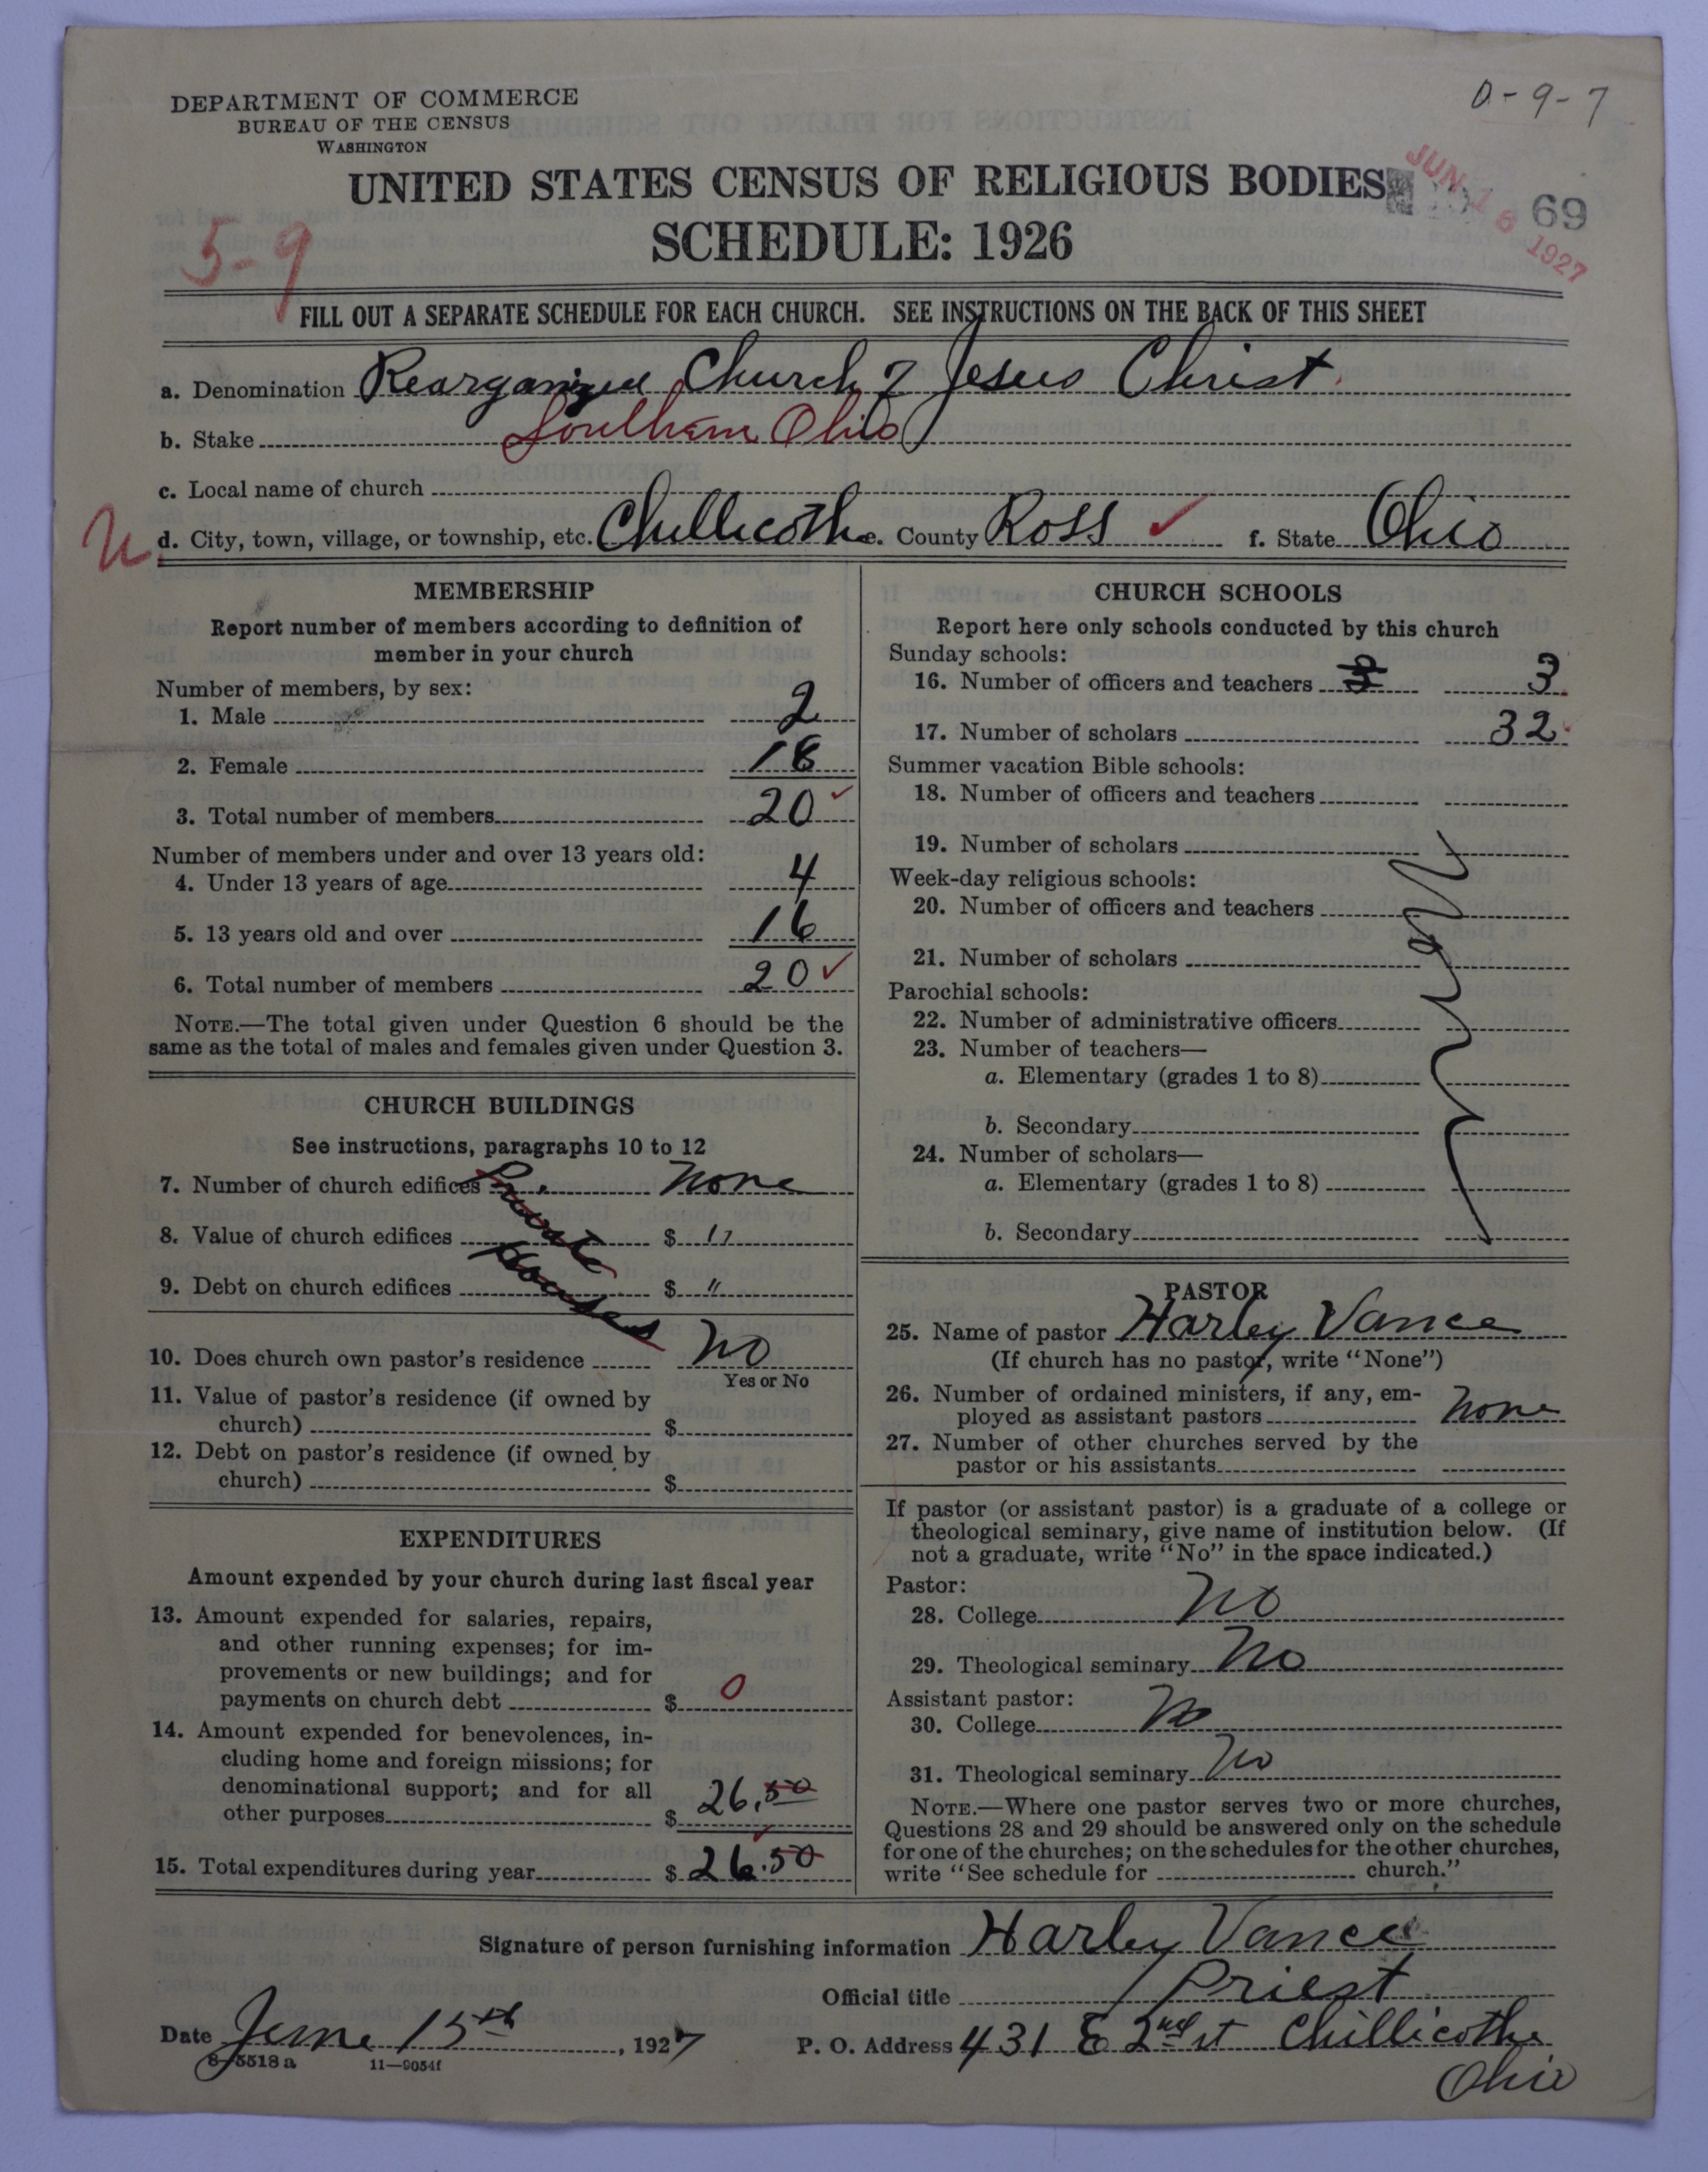 DEPARTMENT OF COMMERCE
BUREAU OF THE CENSUS
WASHINGTON
0-9-7
UNITED STATES CENSUS OF RELIGIOUS BODIES
SCHEDULE: 1926
69
JUN 16 1927
5-9
FILL OUT A SEPARATE SCHEDULE FOR EACH CHURCH. SEE INSTRUCTIONS ON THE BACK OF THIS SHEET
a. Denomination Rearganized Church of Jesus Christ
b. Stake Southern Ohio
c. Local name of church
U d. City, town, village, or township, etc. Chillicothe e. County Ross ✓ f. State Ohio
MEMBERSHIP
Report number of members according to definition of
member in your church
Number of members, by sex:
1. Male 2
2. Female 18
3. Total number of members 20 ✓
Number of members under and over 13 years old:
4. Under 13 years of age 4
5. 13 years old and over 16
6. Total number of members 20 ✓
NOTE.—The total given under Question 6 should be the
same as the total of males and females given under Question 3.
CHURCH BUILDINGS
See instructions, paragraphs 10 to 12
7. Number of church edifices Private none
8. Value of church edifices $ "
Houses
9. Debt on church edifices $ "
10. Does church own pastor's residence No
Yes or No
11. Value of pastor's residence (if owned by
church) $
12. Debt on pastor's residence (if owned by
church) $
EXPENDITURES
Amount expended by your church during last fiscal year
13. Amount expended for salaries, repairs,
and other running expenses; for im-
provements or new buildings; and for
payments on church debt $ 0
14. Amount expended for benevolences, in-
cluding home and foreign missions; for
denominational support; and for all
other purposes $ 26.50
15. Total expenditures during year $ 26.50
CHURCH SCHOOLS
Report here only schools conducted by this church
Sunday schools:
16. Number of officers and teachers 3
17. Number of scholars 32
Summer vacation Bible schools:
18. Number of officers and teachers
19. Number of scholars
Week-day religious schools:
20. Number of officers and teachers
21. Number of scholars
Parochial schools:
22. Number of administrative officers
23. Number of teachers—
a. Elementary (grades 1 to 8)
b. Secondary
24. Number of scholars—
a. Elementary (grades 1 to 8)
b. Secondary
PASTOR
25. Name of pastor Harley Vance
(If church has no pastor, write "None")
26. Number of ordained ministers, if any, em-
ployed as assistant pastors none
27. Number of other churches served by the
pastor or his assistants
If pastor (or assistant pastor) is a graduate of a college or
theological seminary, give name of institution below. (If
not a graduate, write "No" in the space indicated.)
Pastor:
28. College No
29. Theological seminary No
Assistant pastor:
30. College No
31. Theological seminary No
NOTE.—Where one pastor serves two or more churches,
Questions 28 and 29 should be answered only on the schedule
for one of the churches; on the schedules for the other churches,
write "See schedule for church."
Signature of person furnishing information Harley Vance
Official title Priest
Date June 15th, 1927 P. O. Address 431 E 2nd st Chillicothe
Ohio
8-5518a 11—9054f